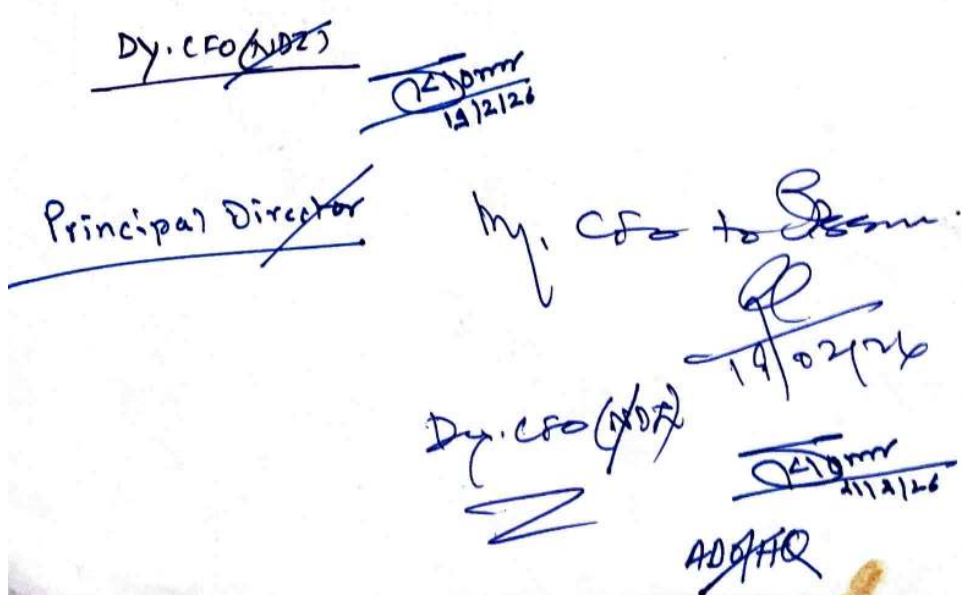 Dy. CFO (NDZ)
19/2/26
Principal Director
Dy. CFO to
19/02/26
Dy. CFO (NDZ)
21/2/26
ADO/HQ